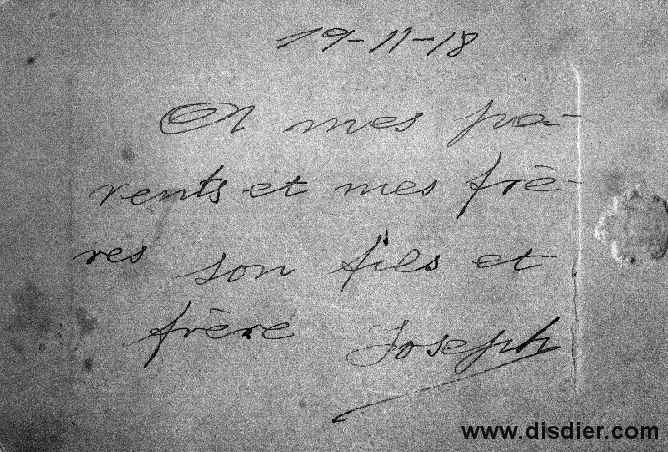 19-11-18
A mes pa-
rents et mes frè-
res son fils et
frère Joseph
www.disdier.com